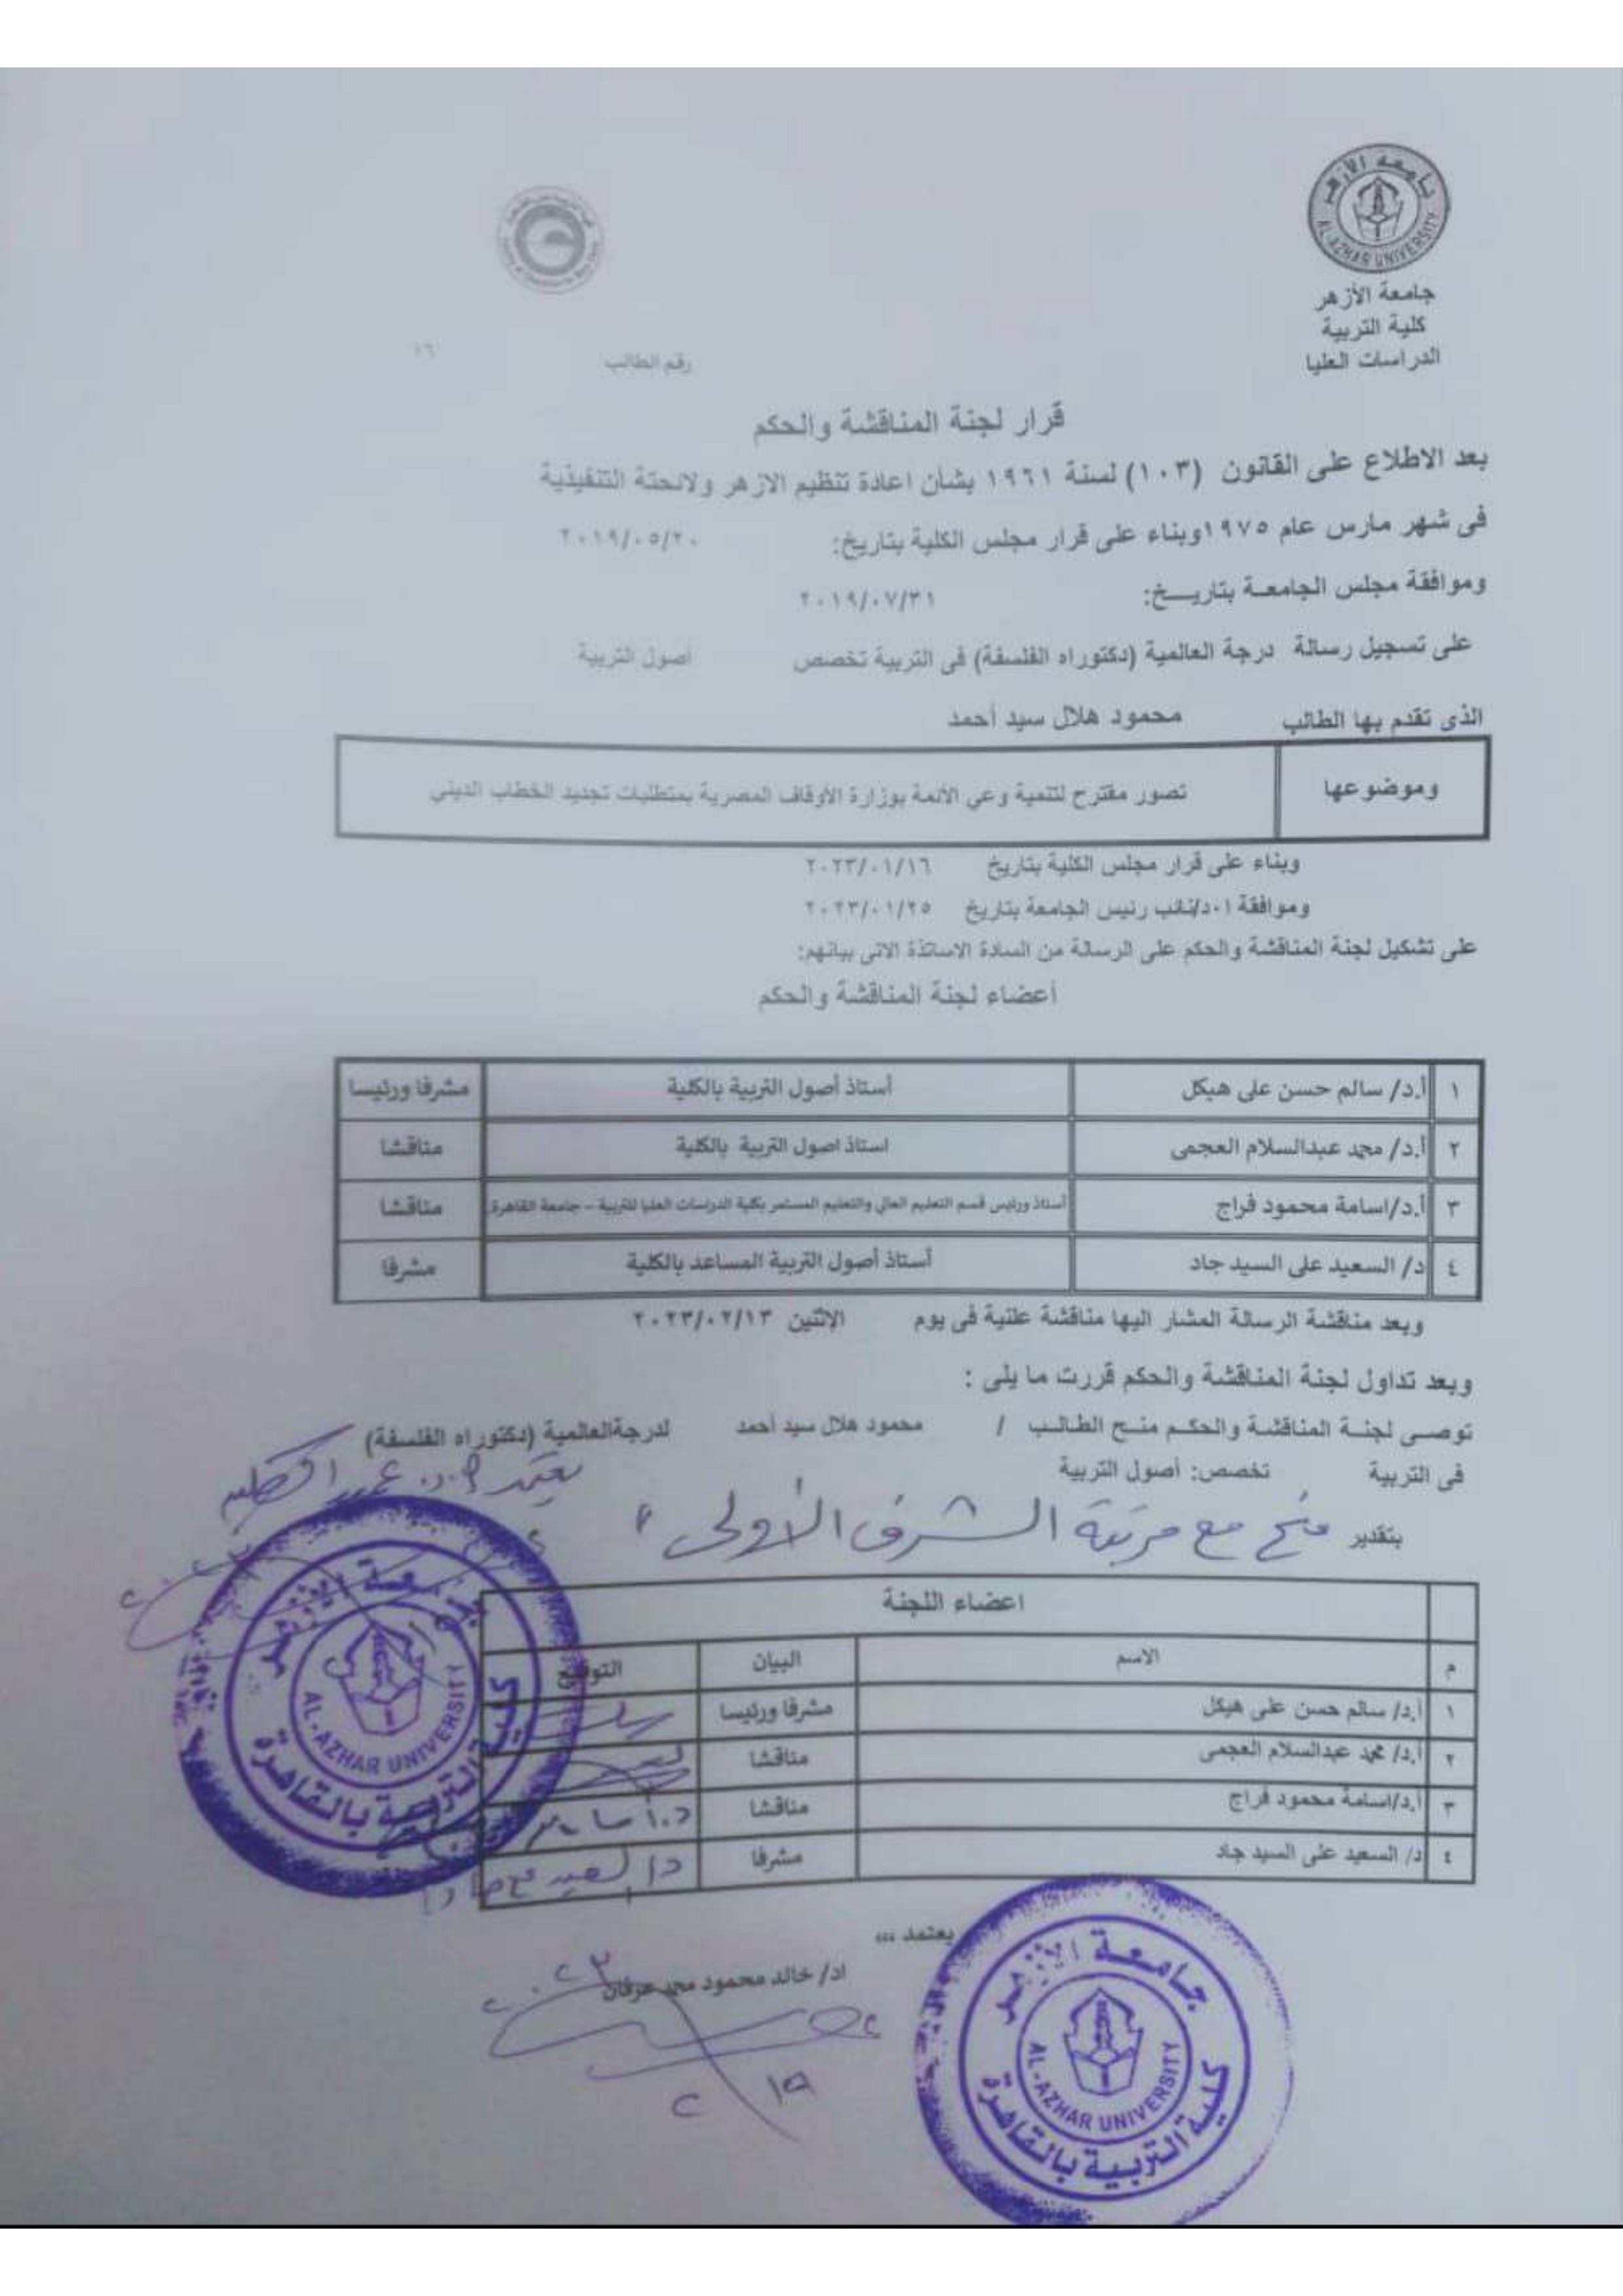 جامعة الأزهر
AL-AZHAR UNIVERSITY
جامعة الأزهر
كلية التربية
الدراسات العليا
رقم الطالب ١٦
قرار لجنة المناقشة والحكم
بعد الاطلاع على القانون (١٠٣) لسنة ١٩٦١ بشأن اعادة تنظيم الازهر ولائحتة التنفيذية
فى شهر مارس عام ١٩٧٥وبناء على قرار مجلس الكلية بتاريخ: ٢٠١٩/٠٥/٢٠
وموافقة مجلس الجامعة بتاريــخ: ٢٠١٩/٠٧/٣١
على تسجيل رسالة درجة العالمية (دكتوراه الفلسفة) فى التربية تخصص أصول التربية
الذى تقدم بها الطالب محمود هلال سيد أحمد
وموضوعها تصور مقترح لتنمية وعي الأئمة بوزارة الأوقاف المصرية بمتطلبات تجديد الخطاب الديني
وبناء على قرار مجلس الكلية بتاريخ ٢٠٢٣/٠١/١٦
وموافقة ا٠د/نائب رئيس الجامعة بتاريخ ٢٠٢٣/٠١/٢٥
على تشكيل لجنة المناقشة والحكم على الرسالة من السادة الاساتذة الاتى بيانهم:
أعضاء لجنة المناقشة والحكم
١ أ.د/ سالم حسن على هيكل أستاذ أصول التربية بالكلية مشرفا ورئيسا
٢ أ.د/ محمد عبدالسلام العجمى استاذ اصول التربية بالكلية مناقشا
٣ أ.د/اسامة محمود فراج أستاذ ورئيس قسم التعليم العالي والتعليم المستمر بكلية الدراسات العليا للتربية – جامعة القاهرة مناقشا
٤ د/ السعيد على السيد جاد أستاذ أصول التربية المساعد بالكلية مشرفا
وبعد مناقشة الرسالة المشار اليها مناقشة علنية فى يوم الاثنين ٢٠٢٣/٠٢/١٣
وبعد تداول لجنة المناقشة والحكم قررت ما يلى :
توصى لجنة المناقشة والحكم منح الطالب / محمود هلال سيد أحمد لدرجةالعالمية (دكتوراه الفلسفة)
فى التربية تخصص: أصول التربية
يعتمد أ.د. عميد الكلية
بتقدير منح مع مرتبة الشرف الأولى
اعضاء اللجنة
م الاسم البيان التوقيع
١ أ.د/ سالم حسن على هيكل مشرفا ورئيسا
٢ أ.د/ محمد عبدالسلام العجمى مناقشا
٣ أ.د/اسامة محمود فراج مناقشا
٤ د/ السعيد على السيد جاد مشرفا
جامعة الأزهر
AL-AZHAR UNIVERSITY
كلية التربية بالقاهرة
يعتمد ،،،
اد/ خالد محمود محمد عرفان
جامعة الأزهر
AL-AZHAR UNIVERSITY
كلية التربية بالقاهرة